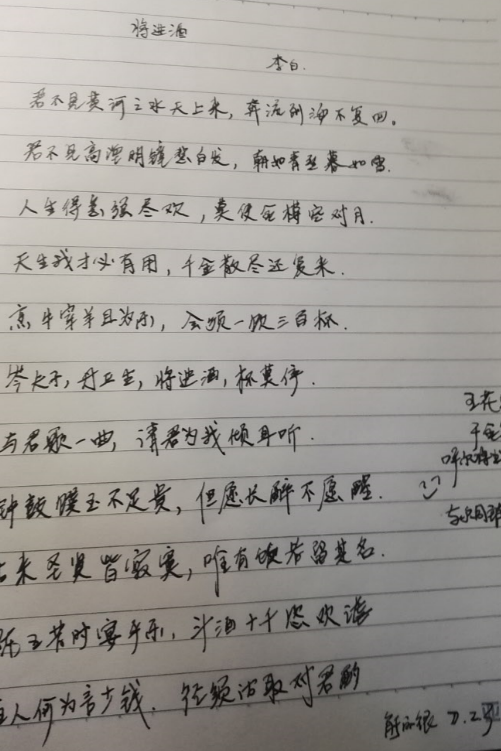 将进酒
李白.
君不见黄河之水天上来，奔流到海不复回。
君不见高堂明镜悲白发，朝如青丝暮如雪.
人生得意须尽欢，莫使金樽空对月.
天生我才必有用，千金散尽还复来.
烹牛宰羊且为乐，会须一饮三百杯.
岑夫子，丹丘生，将进酒，杯莫停.
与君歌一曲，请君为我倾耳听.
钟鼓馔玉不足贵，但愿长醉不愿醒.
来圣贤皆寂寞，唯有饮者留其名.
王昔时宴平乐，斗酒十千恣欢谑
人何为言少钱，径须沽取对君酌
五花
千金
呼尔将出
与尔同